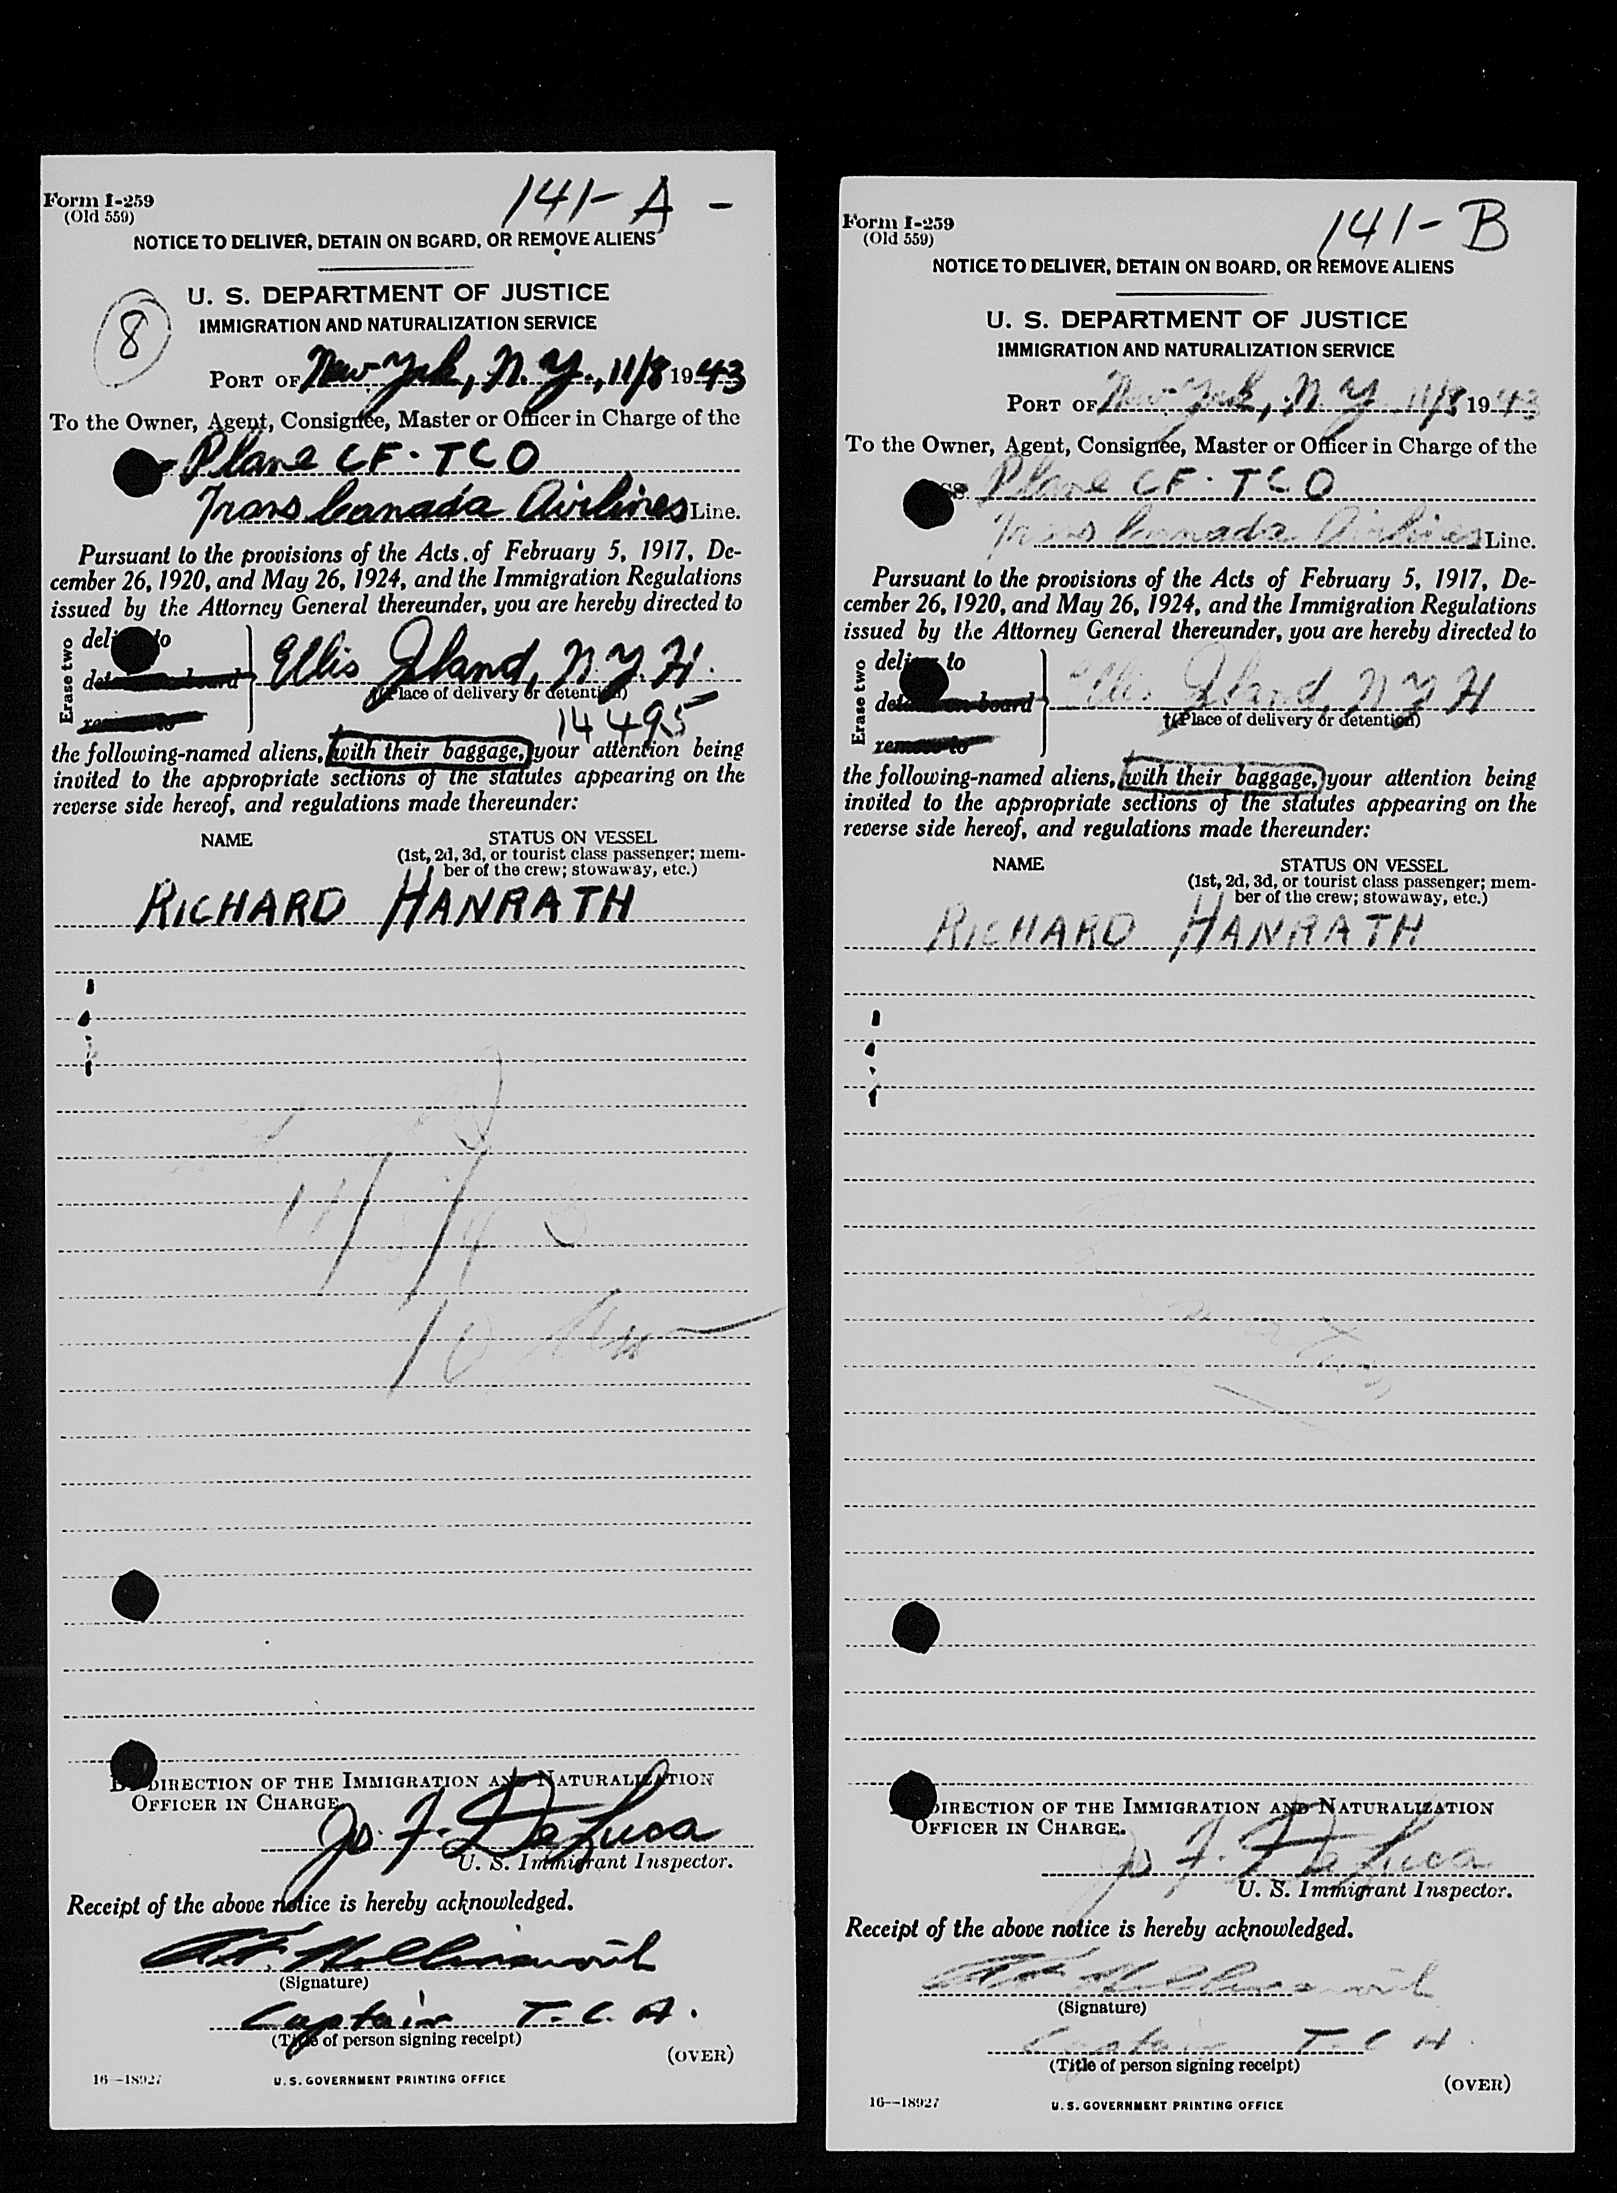 141-A -
Form I-259
(Old 559)
NOTICE TO DELIVER, DETAIN ON BOARD, OR REMOVE ALIENS
U. S. DEPARTMENT OF JUSTICE
8
IMMIGRATION AND NATURALIZATION SERVICE
PORT OF New York, N.Y., 11/8 1943
To the Owner, Agent, Consignee, Master or Officer in Charge of the
Plane CF-TCO
Trans Canada Airlines Line.
Pursuant to the provisions of the Acts of February 5, 1917, De-
cember 26, 1920, and May 26, 1924, and the Immigration Regulations
issued by the Attorney General thereunder, you are hereby directed to
Erase two
deliver to
detain on board
remove to
Ellis Island, N.Y.H.
†(Place of delivery or detention)
14495
the following-named aliens, with their baggage, your attention being
invited to the appropriate sections of the statutes appearing on the
reverse side hereof, and regulations made thereunder:
NAME STATUS ON VESSEL
(1st, 2d, 3d, or tourist class passenger; mem-
ber of the crew; stowaway, etc.)
RICHARD HANRATH
11/
10
BY DIRECTION OF THE IMMIGRATION AND NATURALIZATION
OFFICER IN CHARGE.
Jo. F. DeLuca
U. S. Immigrant Inspector.
Receipt of the above notice is hereby acknowledged.
(Signature)
Captain T.C.A.
(Title of person signing receipt)
(OVER)
16—18927 U.S. GOVERNMENT PRINTING OFFICE
141-B
Form I-259
(Old 559)
NOTICE TO DELIVER, DETAIN ON BOARD, OR REMOVE ALIENS
U. S. DEPARTMENT OF JUSTICE
IMMIGRATION AND NATURALIZATION SERVICE
PORT OF New York, N.Y. 11/8 1943
To the Owner, Agent, Consignee, Master or Officer in Charge of the
SS. Plane CF-TCO
Trans Canada Airlines Line.
Pursuant to the provisions of the Acts of February 5, 1917, De-
cember 26, 1920, and May 26, 1924, and the Immigration Regulations
issued by the Attorney General thereunder, you are hereby directed to
Erase two
deliver to
detain on board
remove to
Ellis Island, N Y H
†(Place of delivery or detention)
the following-named aliens, with their baggage, your attention being
invited to the appropriate sections of the statutes appearing on the
reverse side hereof, and regulations made thereunder:
NAME STATUS ON VESSEL
(1st, 2d, 3d, or tourist class passenger; mem-
ber of the crew; stowaway, etc.)
RICHARD HANRATH
BY DIRECTION OF THE IMMIGRATION AND NATURALIZATION
OFFICER IN CHARGE.
Jo F. DeLuca
U. S. Immigrant Inspector.
Receipt of the above notice is hereby acknowledged.
(Signature)
Captain T C A
(Title of person signing receipt)
(OVER)
16—18927 U.S. GOVERNMENT PRINTING OFFICE